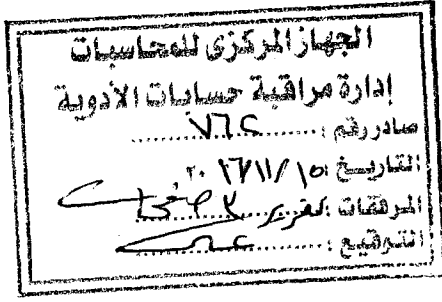 الجهاز المركزى للمحاسبات
إدارة مراقبة حسابات الأدوية
صادر رقم : ٧٦٤
التاريخ : ١٥/١١/١٦ ٢٠
المرفقات : تقرير
التوقيع :